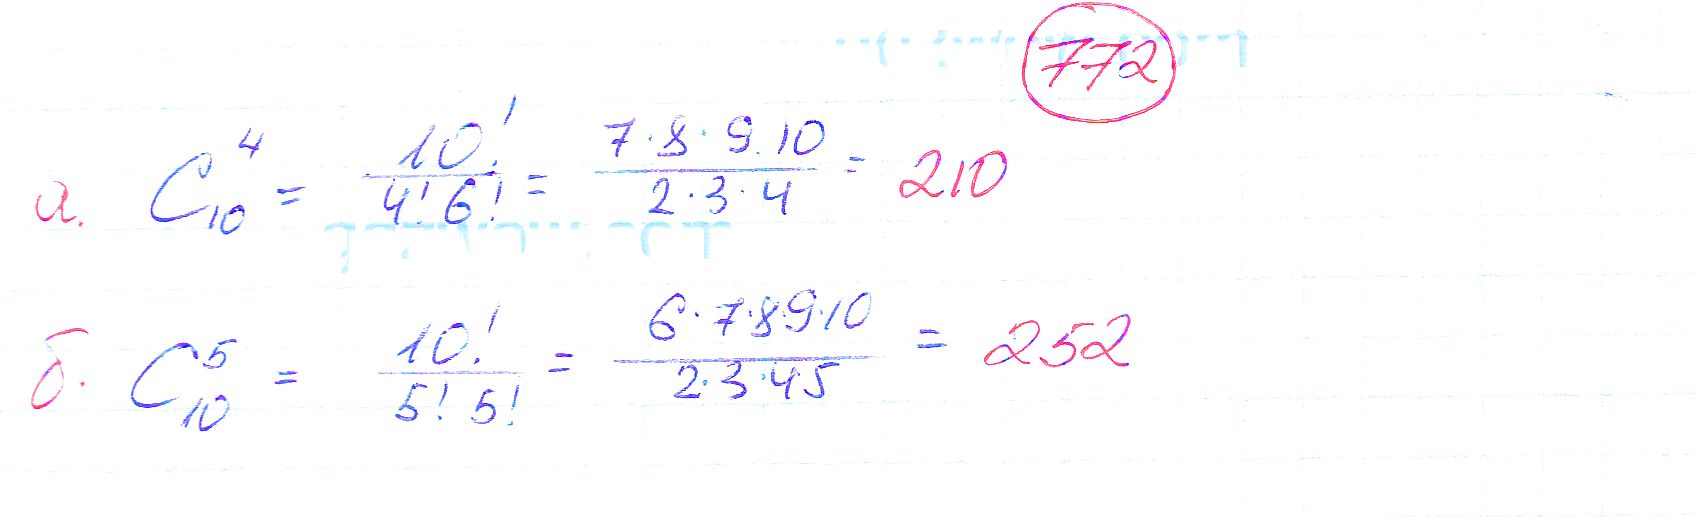 772
а. C₁₀⁴ = 10! / 4! 6! = 7·8·9·10 / 2·3·4 = 210
б. C₁₀⁵ = 10! / 5! 5! = 6·7·8·9·10 / 2·3·4 5 = 252